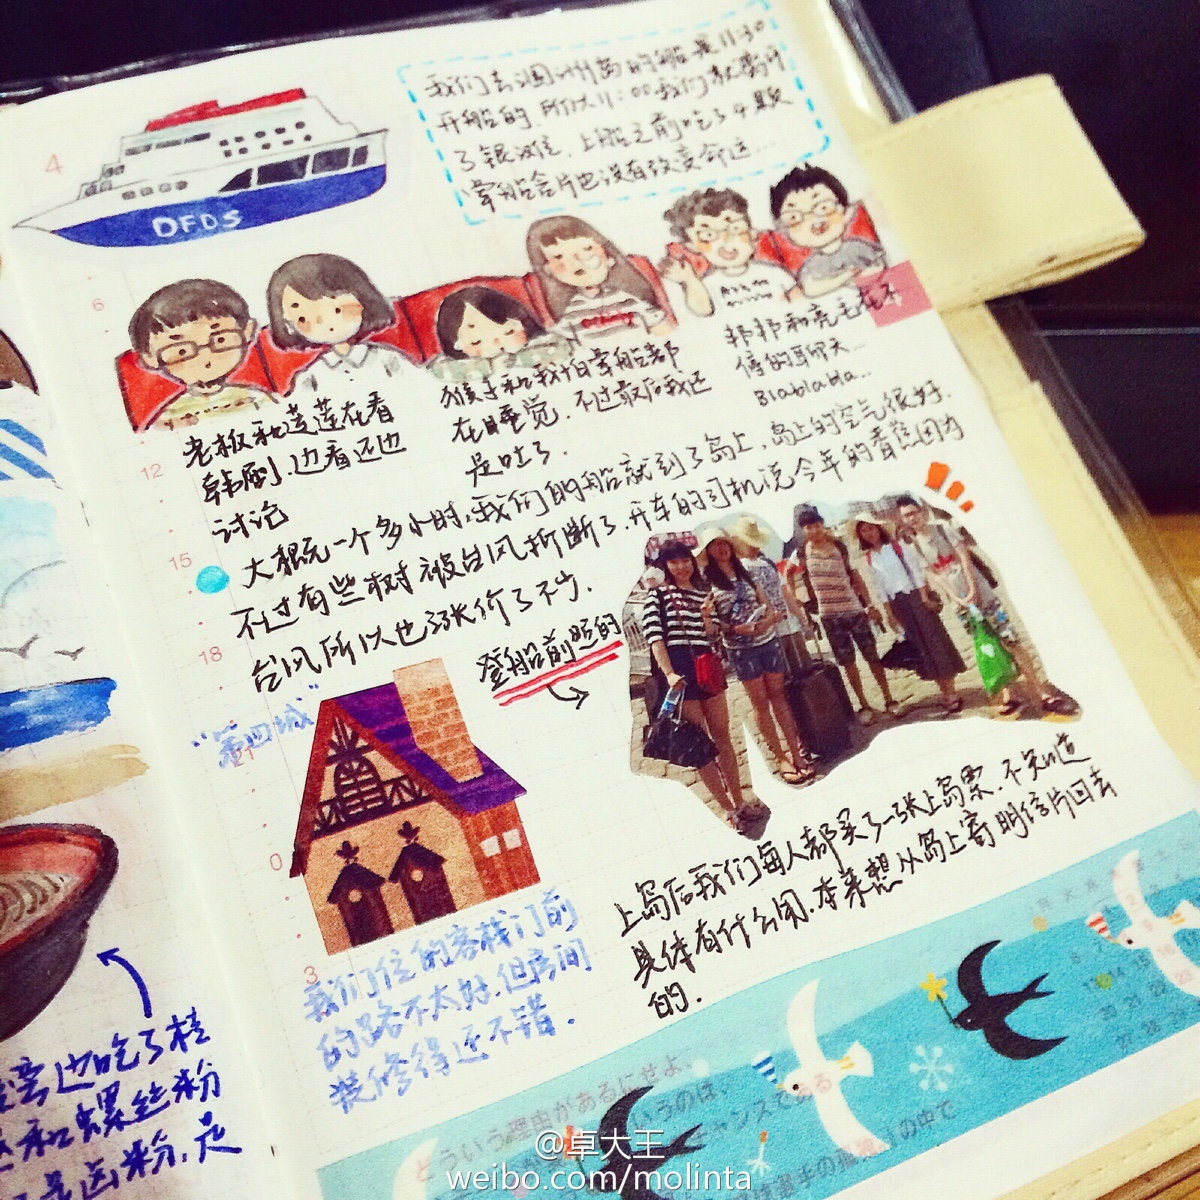 我们去涠洲岛的船是11:30
开船的 所以11:00我们就离开
了银滩往.上船之前吃了4颗
晕船含片也没有改变命运...
4
DFDS
6
老板和莲莲在看
韩剧.边看还边
讨论
猴子和我怕晕船都
在睡觉.不过最后我还
是吐了.
邦邦和亮毛在不
停的聊天...
Blablabla...
12
15
18
21
0
3
大概一个多小时,我们的船就到了岛上,岛上的空气很好.
不过有些树被台风折断了.开车的司机说今年的香蕉因为
台风所以也涨价了不少.
登船前照的
“第四城”
我们住的客栈门前
的路不太好.但房间
装修得还不错.
上岛后我们每人都买了一张上岛票.不知道
具体有什么用.本来想从岛上寄明信片回去
的.
湾边吃了桂
和螺丝粉
粉,足
どういう理由があるにせよ、
いうのは、
チャンスである
の中で
@卓大王
weibo.com/molinta